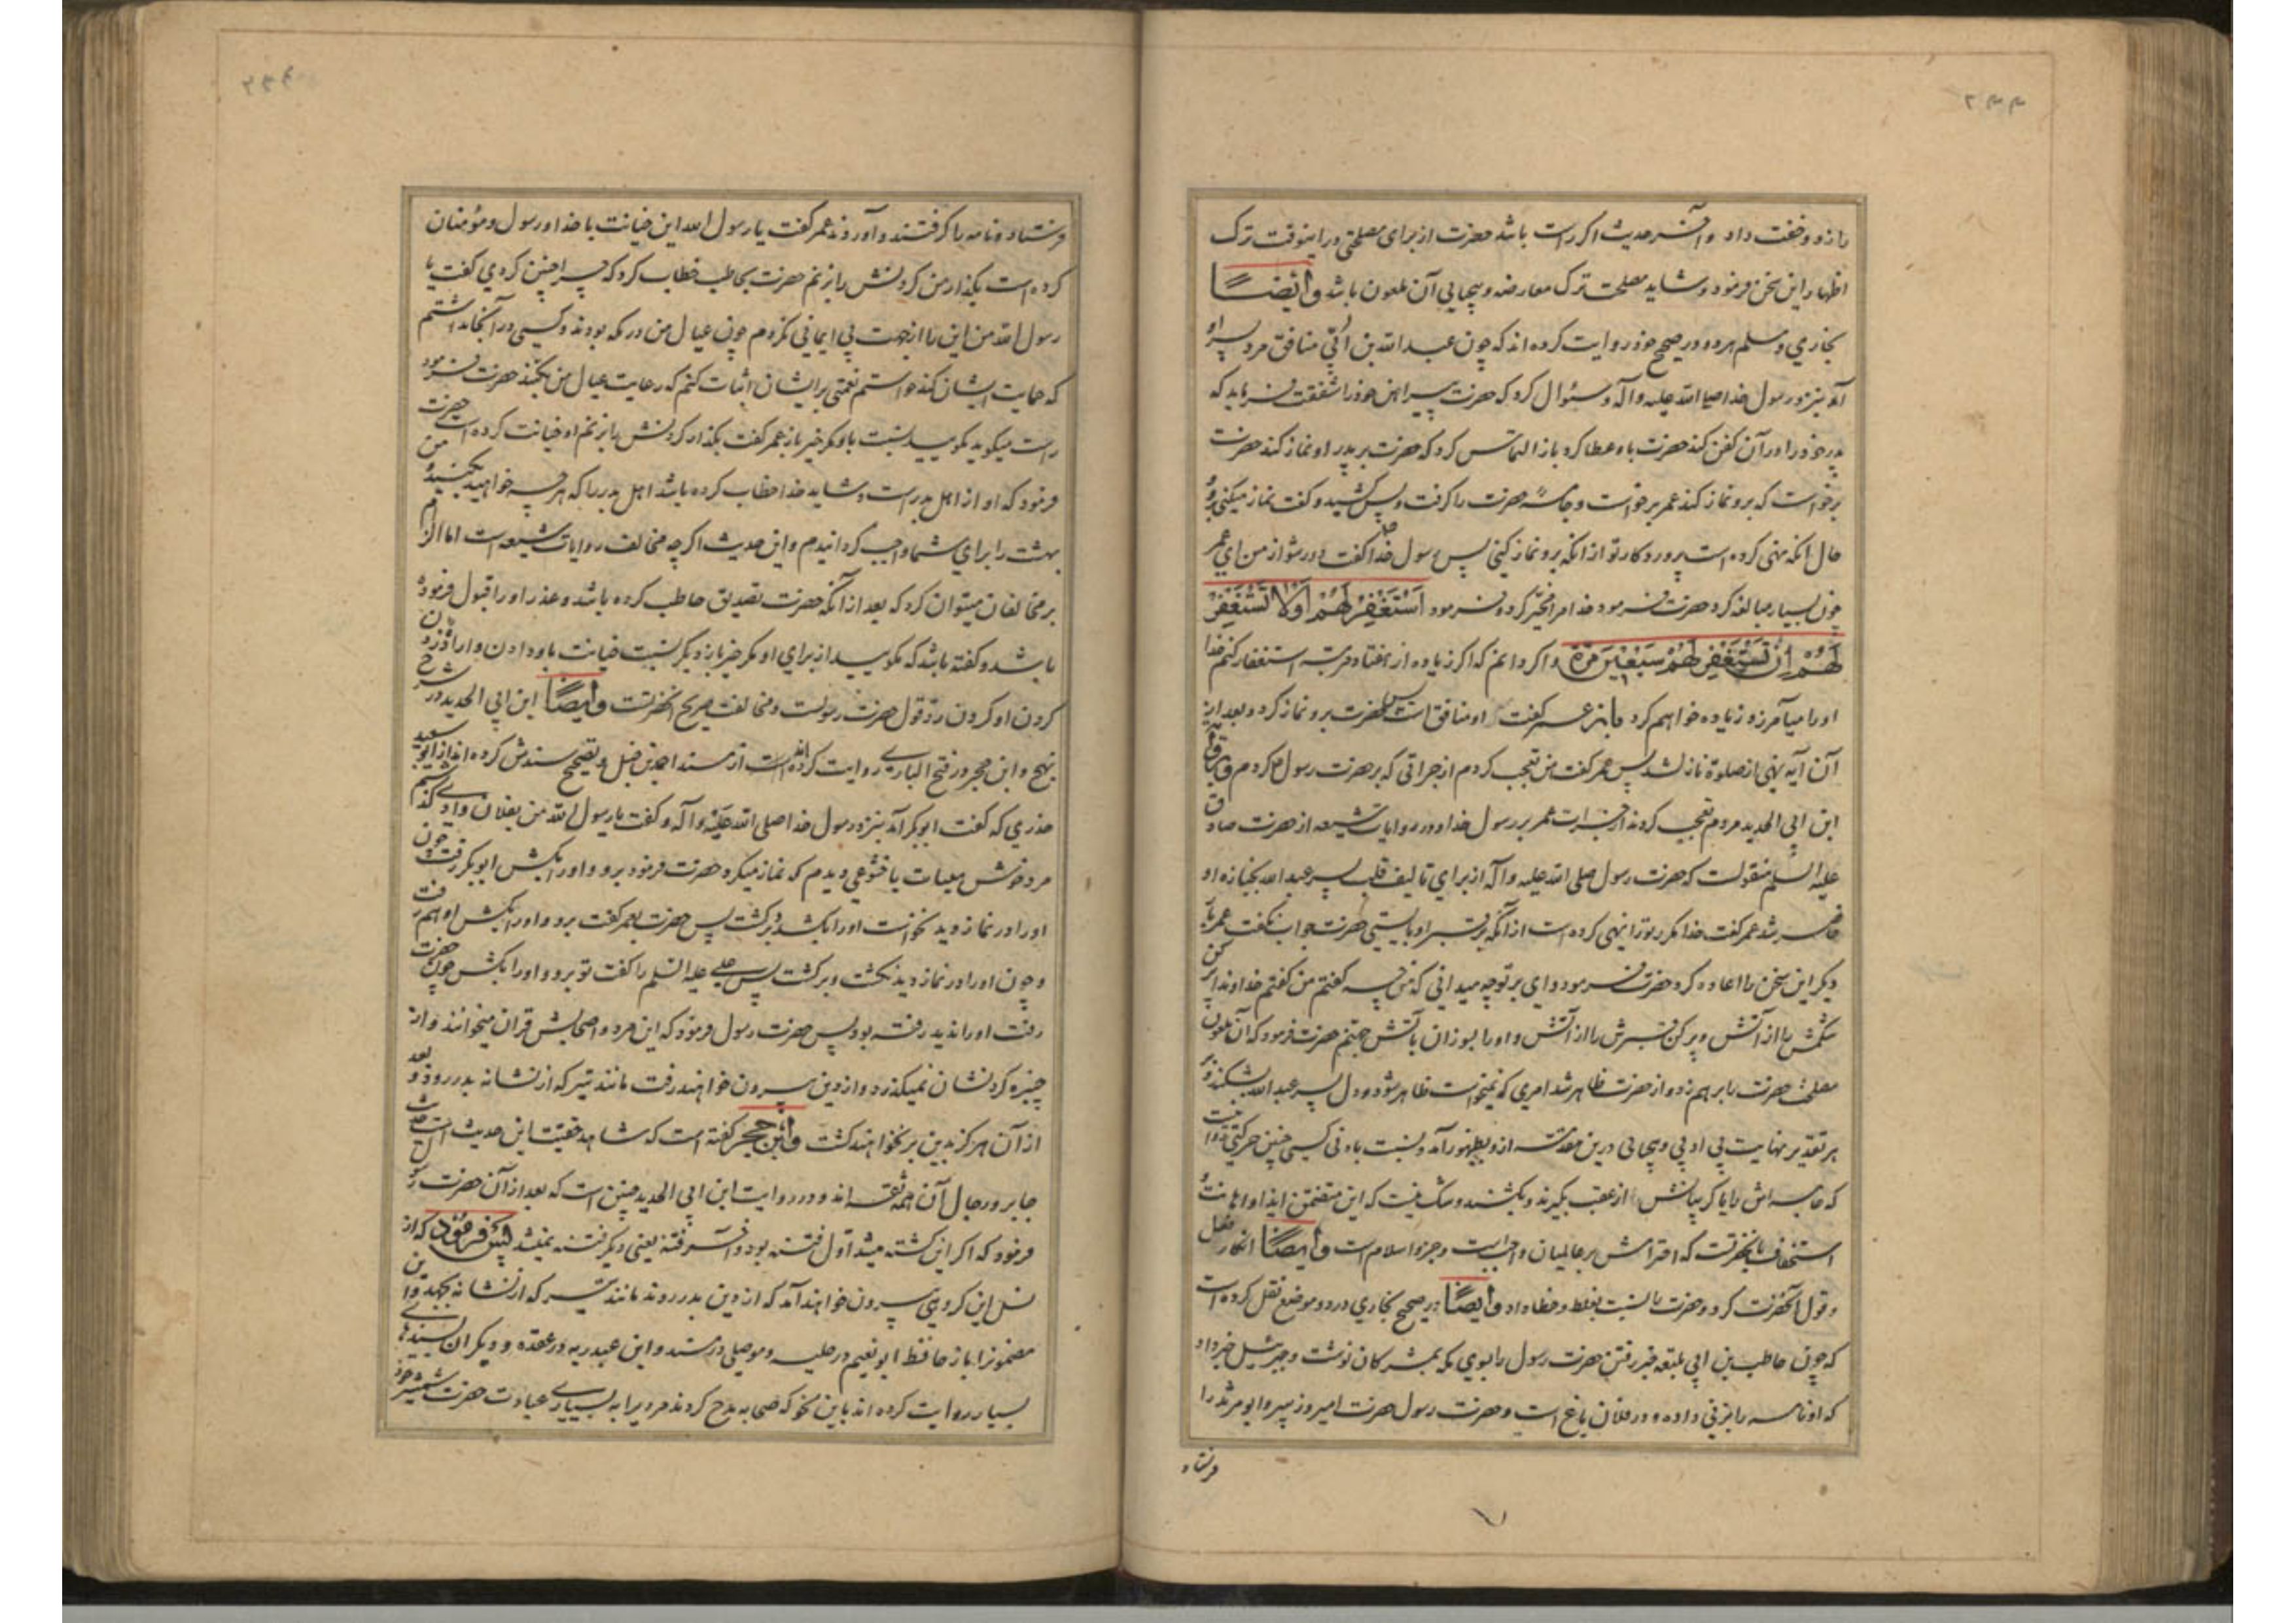 ۲۴۴
را زد و خفت داد و آخر حدیث اگر راست باشد حضرت از برای مصلحتی در اینوقت ترک
اظهار این سخن فرمود و شاید مصلحت ترک معارضه و بیحیایی آن ملعون باشد وایضًا
بخاري و مسلم هر دو در صحیح خود روایت کرده اند که چون عبد الله بن اُبَيّ منافق مرد پسر او
آمد بنزد رسول خدا صلی الله علیه وآله و سئوال کرد که حضرت پیراهن خود را شفقت فرماید که
پدر خود را در آن کفن کند حضرت باو عطا کرد باز التماس کرد که حضرت بر پدر او نماز کند حضرت
برخواست که برو نماز کند عمر برخواست و جامهٔ حضرت را گرفت و پس کشید و گفت نماز میکنی برو
حال آنکه نهی کرده است پروردکار تو از آنکه برو نماز کنی پس رسول خدا گفت دور شو از من اي عمر
چون بسیار مبالغه کرد حضرت فرمود خدا مرا مخیّر کرده و فرمود اسْتَغْفِرْ لَهُمْ اَوْ لا تَسْتَغْفِرْ
لَهُمْ اِنْ تَسْتَغْفِرْ لَهُمْ سَبْعِیْنَ مَرَّةً و اگر دانم که اگر زیاده از هفتاد مرتبه استغفار کنم خدا
اورا میآمرزد زیاده خواهم کرد باز عمر گفت او منافق است پس حضرت برو نماز کرد و بعد از
آن آیه نهی از صلوة نازل شد پس عمر گفت من تعجب کردم از جراتی که بر حضرت رسول کردم
ابن ابي الحدید مردم تعجب کردند از جرات عمر بر رسول خدا و در روایات شیعه از حضرت صادق
علیه السلم منقولست که حضرت رسول صلی الله علیه وآله از براي تالیف قلب پسر عبد الله بجنازه او
حاضر شد عمر گفت خدا مکر تو را نهی نکرده است از آنکه بر قبر او بایستی حضرت جواب نگفت عمر بار
دیکر این سخن را اعاده کرد حضرت فرمود وای بر تو چه میدانی که من چه گفتم من گفتم خداوندا پر کن
شکمش را از آتش و پر کن قبرش را از آتش و او را بسوزان بآتش جهنم حضرت فرمود که آن ملعون
مصلحت حضرت را برهم زد و از حضرت ظاهر شد امری که نمیخواست ظاهر شود و دل پسر عبد الله بشکند و بر
هر تقدیر نهایت بی ادبي و بیحیائی درین مقدمه از و بظهور آمد و نسبت بادنی کسی چنین حرکتی
که جامه اش را یا گریبانش از عقب بگیرند و بکشند و شک نیست که این متضمن ایذا و اهانت و
استخفاف بآنحضرتست که احترامش بر عالمیان واجبست و جزو اسلام است وایضًا انکار فعل
و قول آنحضرت کرد و حضرت را نسبت بغلط و خطا داد وایضًا در صحیح بخاري در دو موضع نقل کرده است
که چون حاطب بن ابي بلتعه خبر رفتن حضرت رسول را بسوي مکه بمشرکان نوشت و جبرئیل خبر داد
که او نامه را بزنی داده و در فلان باغ است و حضرت رسول حضرت امیر و زبیر و ابو مرثد را
فرستاد
فرستاد و نامه را گرفتند و آوردند عمر گفت یا رسول الله این خیانت با خدا و رسول و مؤمنان
کرده است بگذار من گردنش را بزنم حضرت بحاطب خطاب کرد که چرا چنین کردي گفت یا
رسول الله من این را از جهت بی ایمانی نکردم چون عیال من در مکه بودند و کسی در آنجا نداشتم
که حمایت ایشان کند خواستم نعمتی بر ایشان اثبات کنم که رعایت عیال من بکنند حضرت فرمود
راست میگوید مگویید نسبت باو مگر خیر باز عمر گفت بگذار گردنش را بزنم او خیانت کرده است حضرت
فرمود که او از اهل بدر است و شاید خدا خطاب کرده باشد اهل بدر را که هر چه خواهید بکنید من
بهشت را براي شما واجب گردانیدم و این حدیث اگر چه مخالف روایات شیعه است اما الزام
بر مخالفان میتوان کرد که بعد از آنکه حضرت تصدیق حاطب کرده باشد و عذر او را قبول فرموده
باشد و گفته باشد که مگویید از براي او مگر خیر باز دیگر نسبت خیانت باو دادن و اراده
گردن او کردن ردّ قول حضرت رسولست و مخالفت صریح آنحضرتست وایضًا ابن ابي الحدید در شرح
نهج و ابن حجر در فتح الباري روایت کرده اند از مسند احمد بن حنبل و تصحیح سندش کرده اند از ابو سعید
خدري که گفت ابو بکر آمد بنزد رسول خدا صلی الله علیه وآله و گفت یا رسول الله من بفلان وادي گذشتم
مرد خوش هیات با خشوعي دیدم که نماز میکرد حضرت فرمود برو و او را بکش ابو بکر رفت چون
او را در نماز دید نخواست او را بکشد برگشت پس حضرت بعمر گفت برو و او را بکش او هم رفت
و چون او را در نماز دید نکشت و برگشت پس علي علیه السلم را گفت تو برو و او را بکش چون حضرت
رفت او را ندید رفته بود پس حضرت رسول فرمود که این مرد و اصحابش قران میخوانند و از
چنبره گردنشان نمیگذرد و از دین بیرون خواهند رفت مانند تیر که از نشانه بدر رود و بعد
از آن هرگز بدین بر نخواهند گشت وابن حجر گفته است که شاهد حقیّت این حدیث است حدیث
جابر و رجال آن همه ثقه اند و در روایت ابن ابي الحدید چنین است که بعد از آن حضرت رسول
فرمود که اگر این کشته میشد اول فتنه بود و آخر فتنه یعنی دیگر فتنه نمیشد پس فرمود که از
نسل این گروهی بیرون خواهند آمد که از دین بدر روند مانند تیر که از نشانه بجهد و این
مضمونرا باز حافظ ابو نعیم در حلیه و موصلي در مسند و ابن عبد ربه در عقد و دیگران بسندهای
بسیار روایت کرده اند باین نحو که صحابه مدح کردند مردیرا به بسیاري عبادت حضرت شمشیر خود